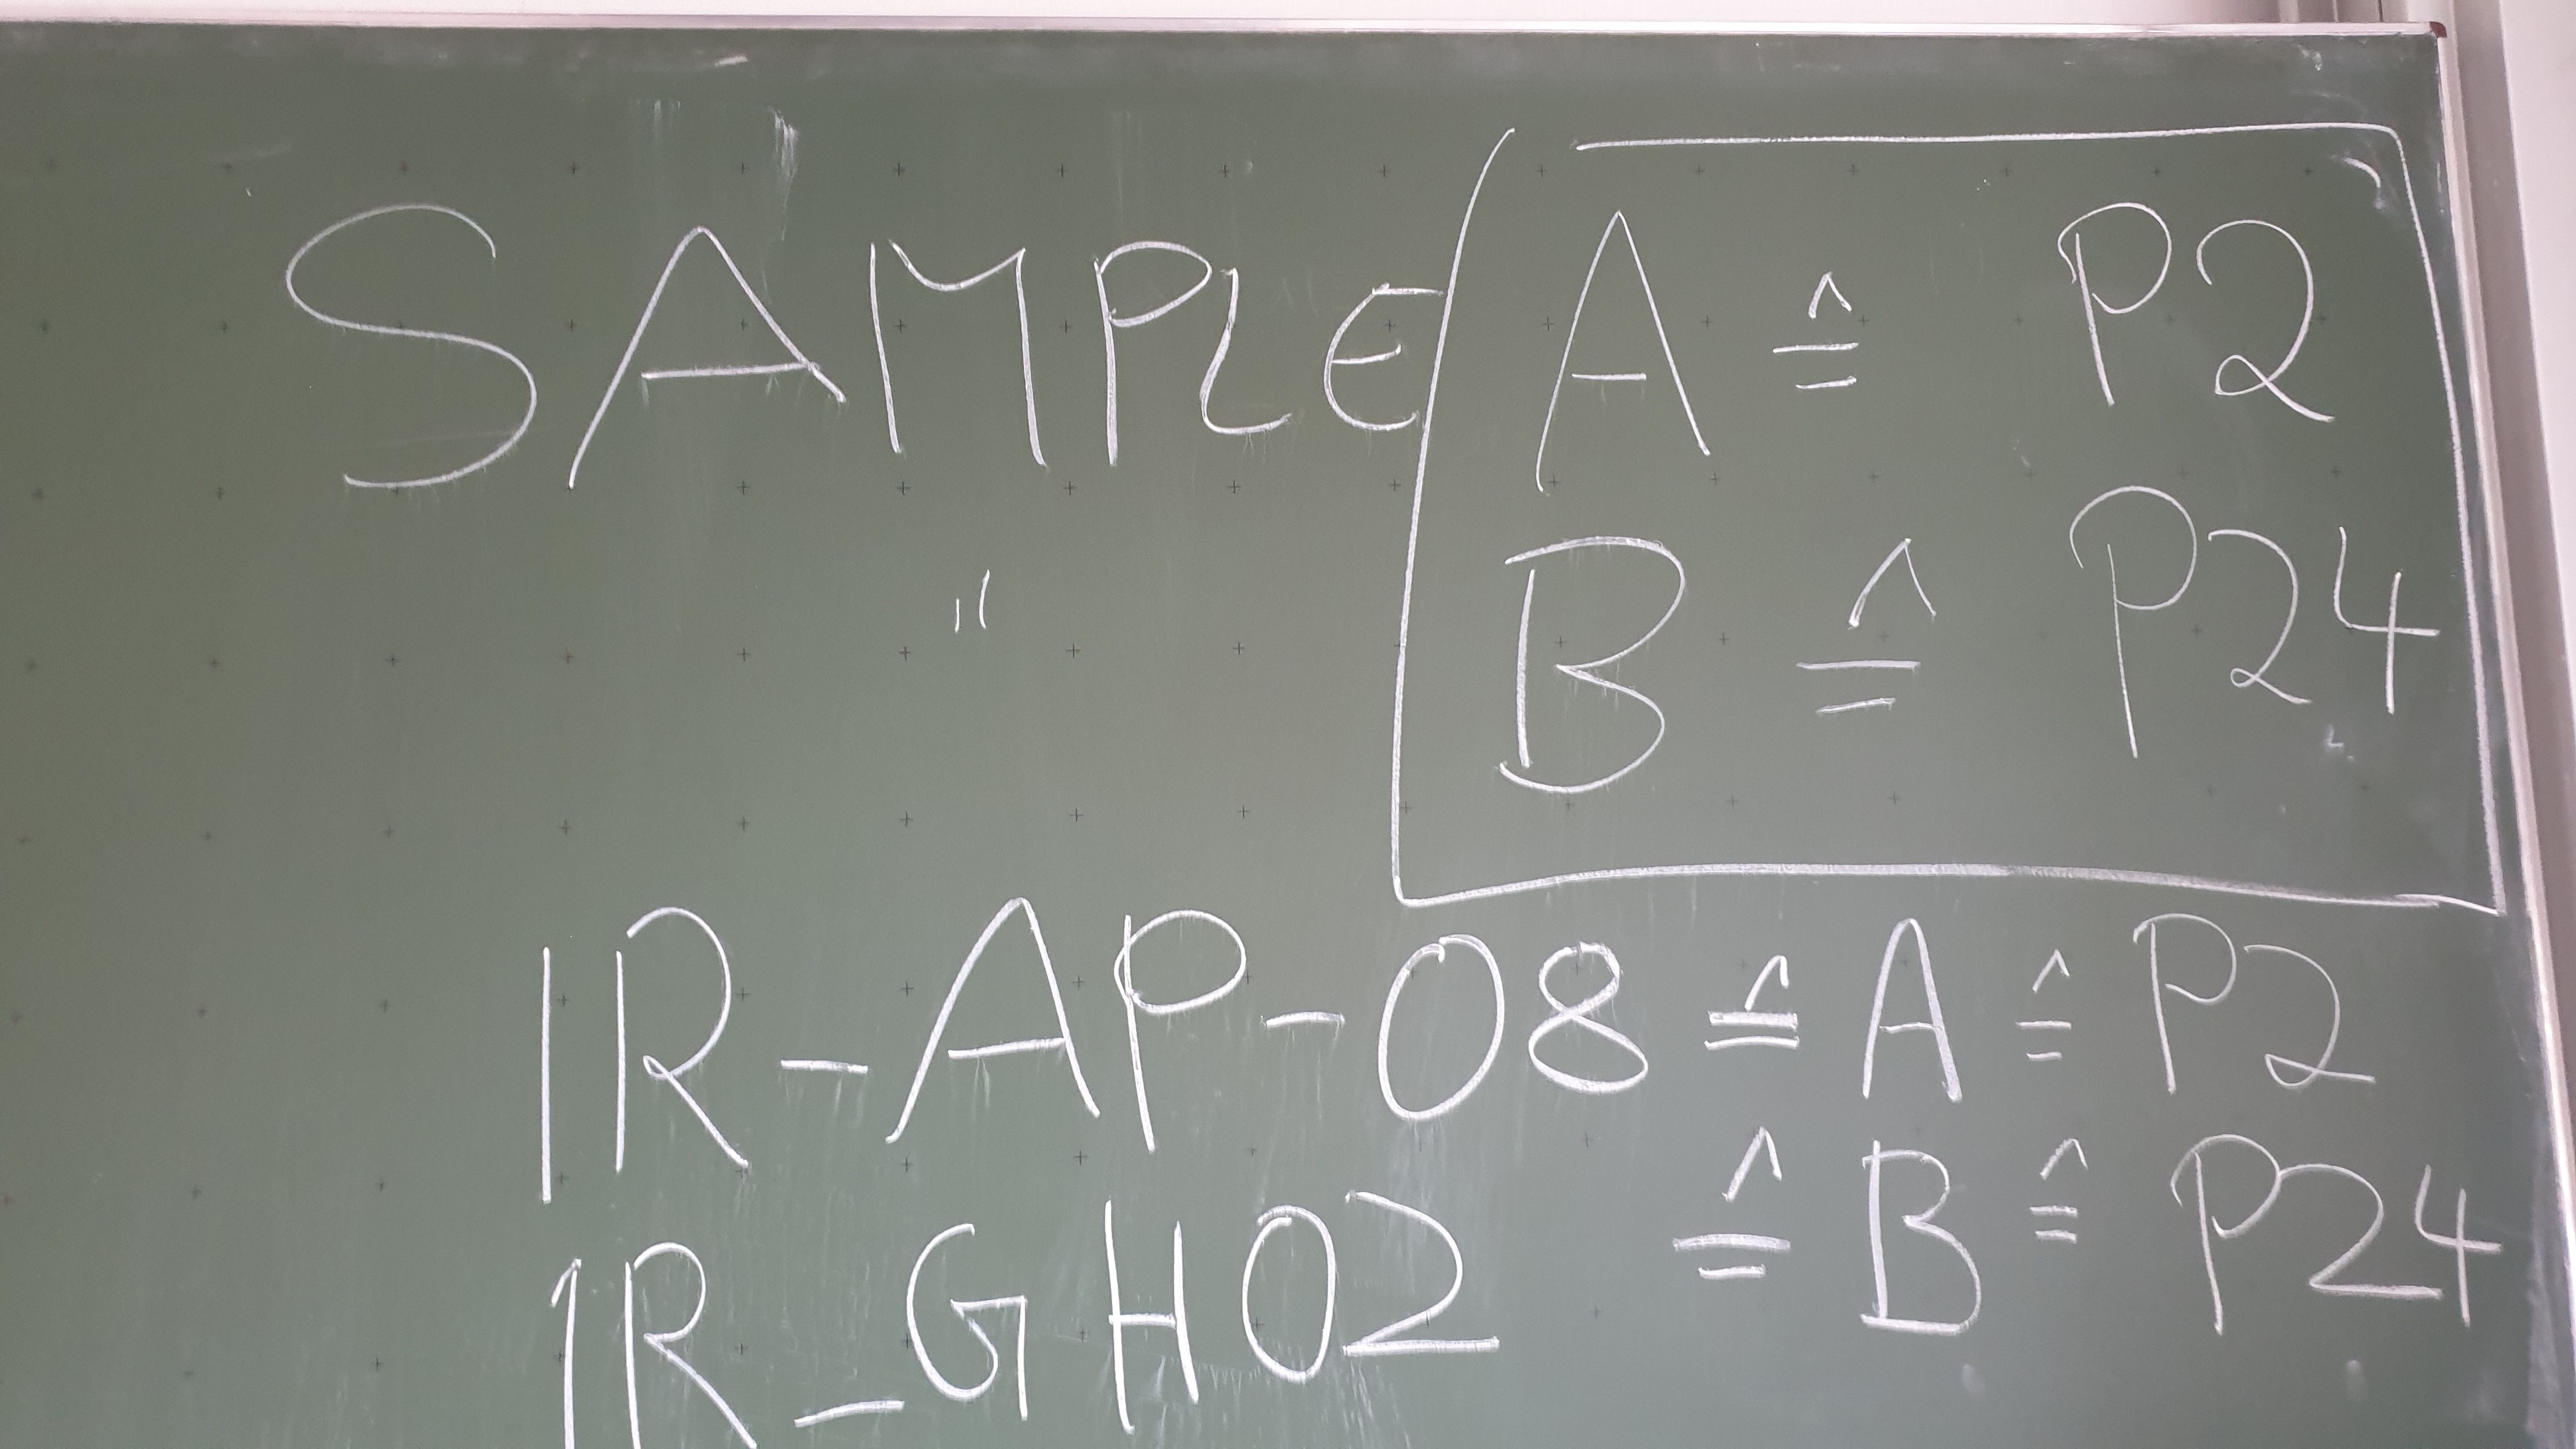 SAMPLE A ≙ P2
" B ≙ P24
IR-AP-08 ≙ A ≙ P2
IR_GH02 ≙ B ≙ P24